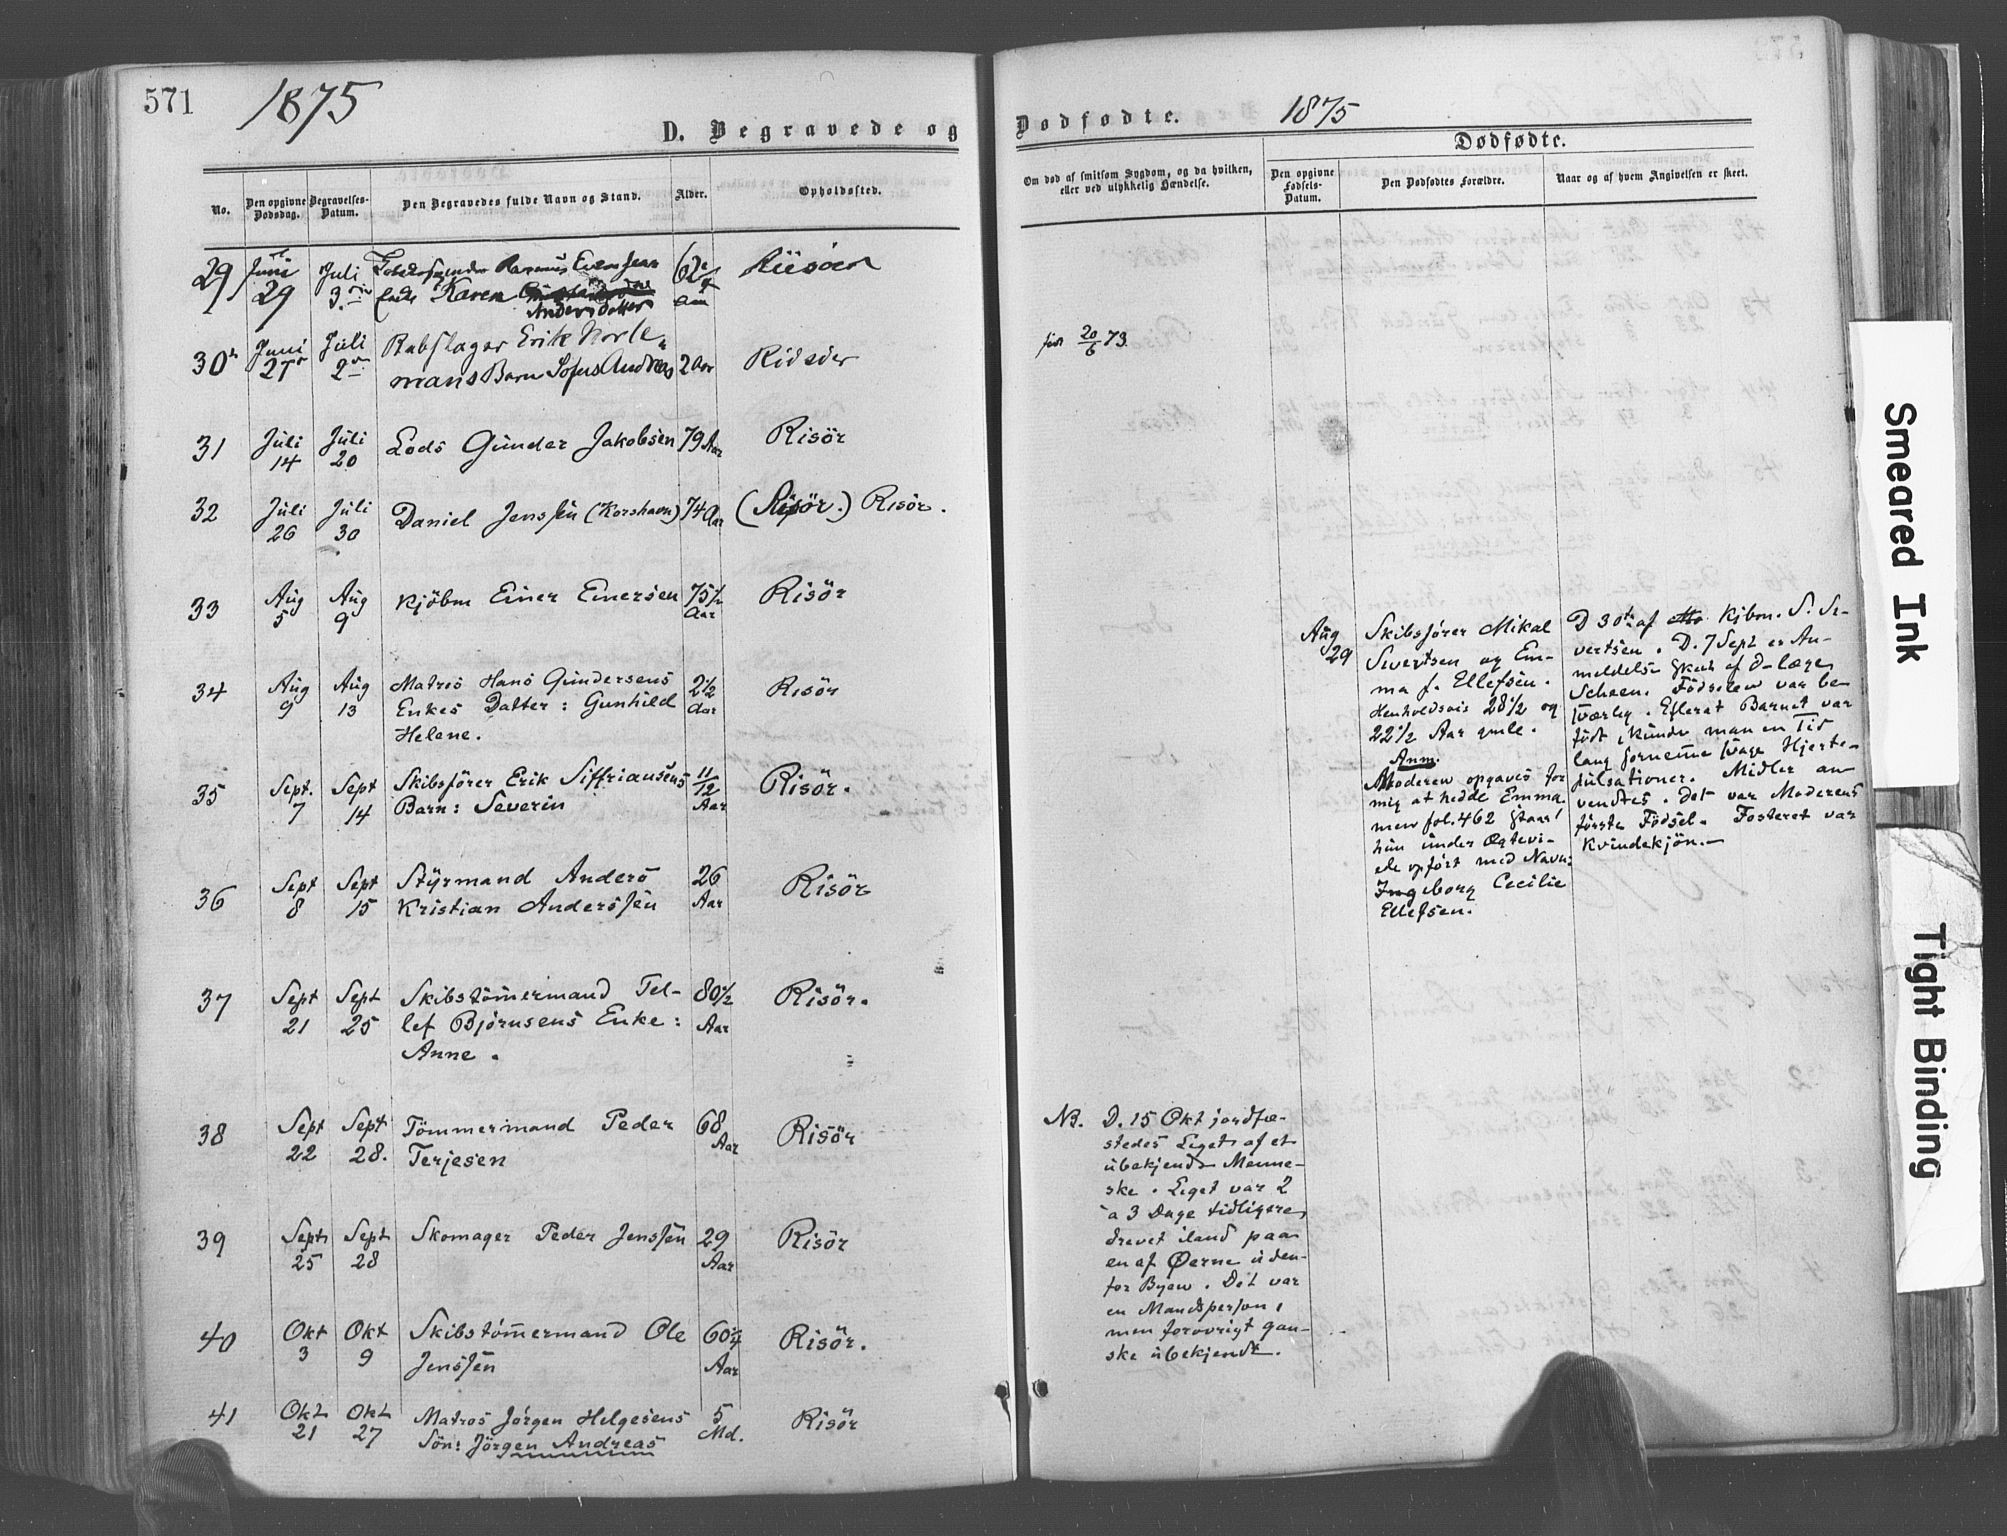 571
1875
D. Begravede og
No. Den opgivne Dødsdag. Begravelses-Datum. Den Begravedes fulde Navn og Stand. Alder. Opholdssted.
29 Juni 29 Juli 3 Rasmus Evensens
Enke Karen
Andersdatter
30 Juni 27 Juli 2 Rebslager Erik Norle-
mans Barn Sofus Andreas 2 Aar Risöer
31 Juli 14 Juli 20 Lods Gunder Jakobsen 79 Aar Risör
32 Juli 26 Juli 30 Daniel Jenssen (Korshavn) 74 Aar (Risör.) Risör.
33 Aug 5 Aug 9 Kjöbm Einer Einersen 75 1/2 Aar Risör
34 Aug 9 Aug 13 Matros Hans Gundersens 2 1/2 Aar Risör
Enkes Datter: Gunhild
Helene.
35 Sept. 7 Sept 14 Skibsförer Erik Siffriansens 11/12 Aar Risör.
Barn: Severin
36 Sept 8 Sept 15 Styrmand Anders 26 Aar Risör
Kristian Anderssen
37 Sept 21 Sept 25 Skibstömermand Tel- 80 1/2 Aar Risör.
lef Björnsens Enke:
Anne.
38 Sept 22 Sept 28. Tömmermand Peder 68 Aar Risör
Terjesen
39 Sept 25 Sept 28 Skomager Peder Jenssen 29 Aar Risör
40 Okt 3 Okt 9 Skibstömermand Ole 60 3/4 Aar Risör.
Jenssen
41 Okt 21 Okt 27 Matros Jörgen Helgesens 5 Md. Risör
Sön: Jörgen Andreas
Dødfødte.
1875
Dødfødte.
Om død af smitsom Sygdom, og da hvilken,
eller ved ulykkelig Hændelse.
Den opgivne Fødsels-Datum. Den Dødfødtes Forældre. Naar og af hvem Angivelsen er skeet.
født 20/6 73.
Aug 29
Skibsförer Mikal
Severtsen og Em-
ma f. Ellefsen.
Henholdsvis 28 1/2 og
22 1/2 Aar gmle.
Anm.
Moderen opgaves for
mig at hedde Emma
men fol. 462 staar
hun under Ægtevi-
ede opfört med Navn:
Ingeborg Cecilie
Ellefsen.
D 30te af Kjbm. S. Se-
vertsen. D. 7 Sept er An-
meldelse skeet af d-læge
Scheen. Födselen var be-
sværlig. Efterat Barnet var
födt, kunde man en Tid
lang fornemme svage Hjerte-
pulsationer. Midler an-
vendtes. Det var Moderens
förste Födsel. Fosteret var
Kvindekjön.
NB. D. 15 Okt jordfæ-
stedes Liget af et
ubekjendt Menne-
ske. Liget var 2
a 3 Dage tidligere
drevet iland paa
en af Øerne uden-
for Byen. Det var
en Mandsperson,
men forövrigt gan-
ske ubekjendt.
Smeared Ink
Tight Binding